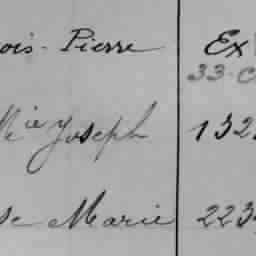 ois-Pierre Ex
33-C
Mie Joseph 132
se Marie 223